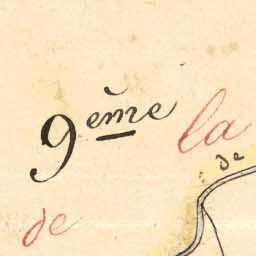 9ème la
de
de